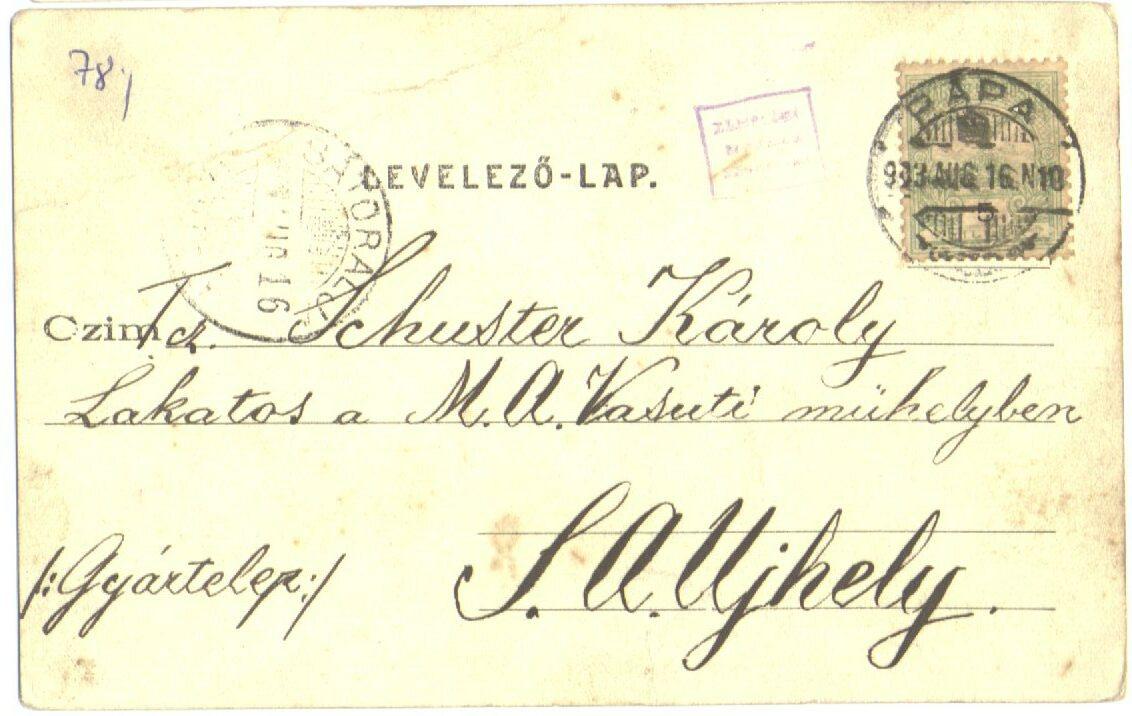 78
PÁPA
903 AUG 16 N10
LEVELEZŐ-LAP.
AUG 16
Czim Tcz. Schuster Károly
Lakatos a M. A. Vasuti műhelyben
/:Gyártelep:/
S. A. Ujhely.